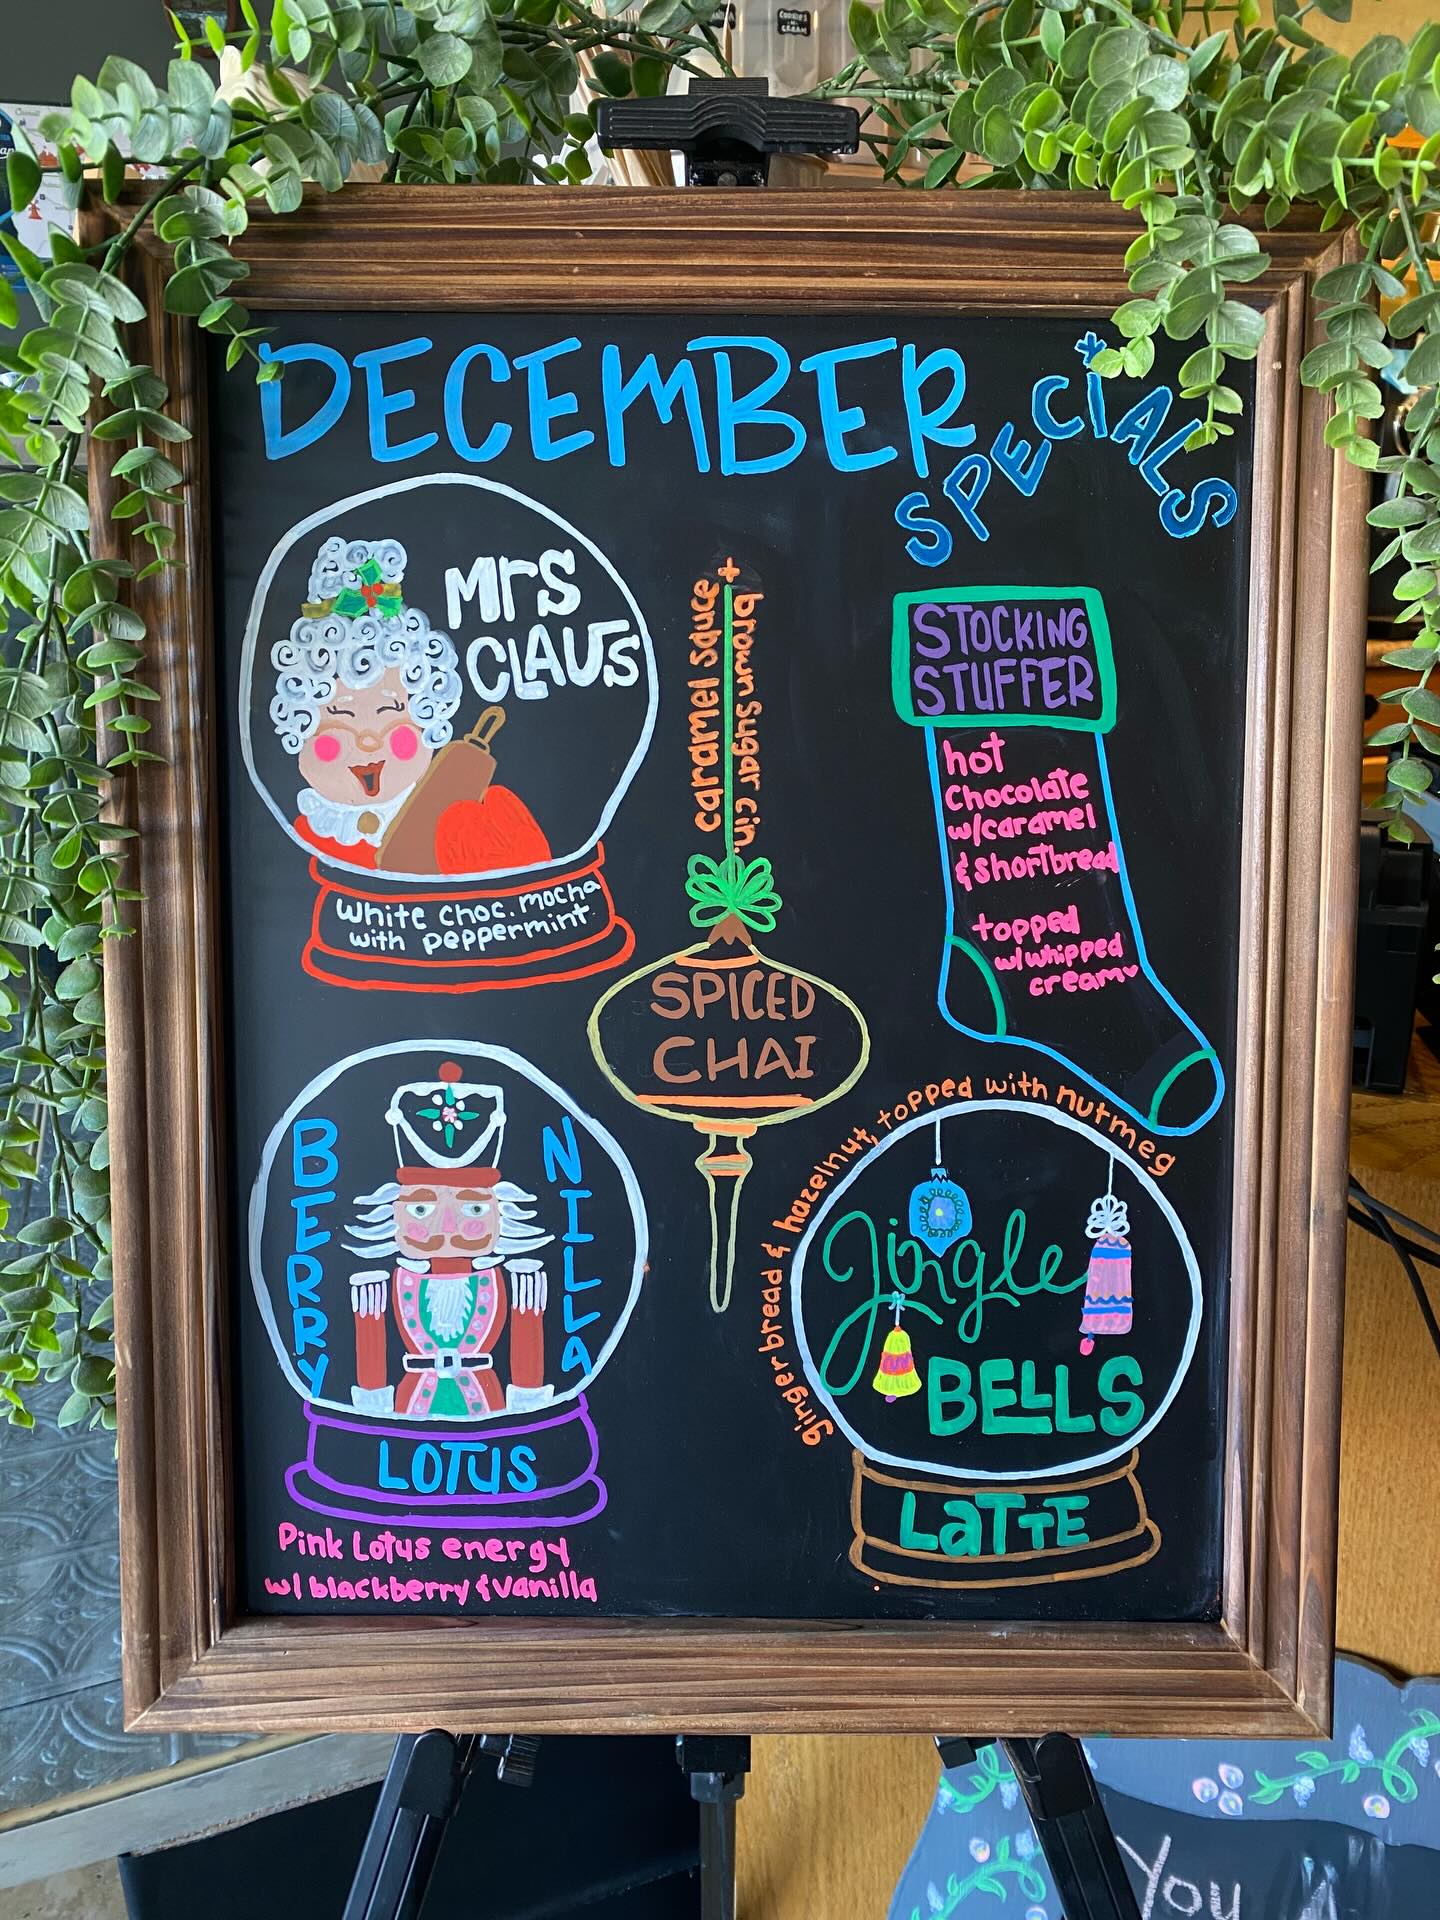 COOKIES
CREAM
DECEMBER
SPECIALS
Mrs
CLAUS
white choc. mocha
with peppermint
caramel sauce +
brown sugar cin.
SPICED
CHAI
STOCKING
STUFFER
hot
chocolate
w/caramel
& shortbread
topped
w/whipped
cream
BERRY
NILLA
LOTUS
Pink Lotus energy
w/ blackberry & vanilla
gingerbread & hazelnut, topped with nutmeg
Jingle
BELLS
LaTTE
You